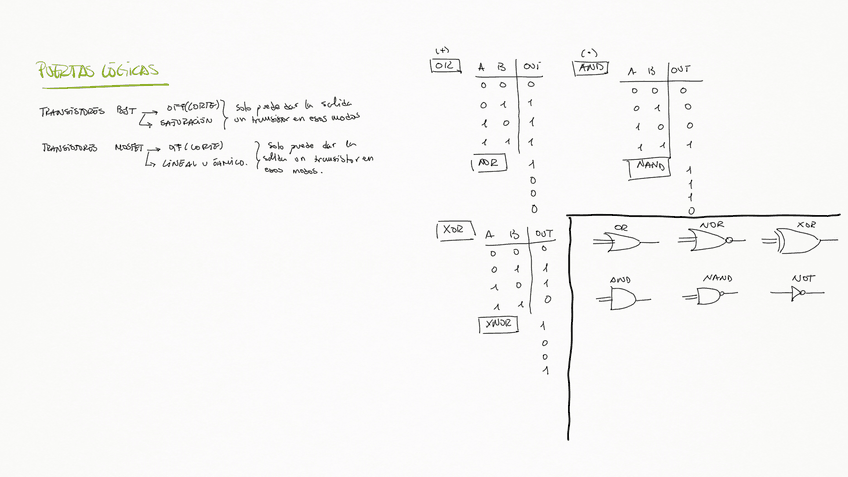 PUERTAS LÓGICAS
TRANSISTORES BJT → OFF (CORTE)
↳ SATURACIÓN
solo puede dar la salida
un transistor en esos modos
TRANSISTORES MOSFET → OFF (CORTE)
↳ LINEAL U ÓHMICO.
solo puede dar la
salida un transistor en
esos modos.
(+)
OR
A B OUT
0 0 0
0 1 1
1 0 1
1 1 1
NOR
1
0
0
0
(·)
AND
A B OUT
0 0 0
0 1 0
1 0 0
1 1 1
NAND
1
1
1
0
XOR
A B OUT
0 0 0
0 1 1
1 0 1
1 1 0
XNOR
1
0
0
1
OR NOR XOR
AND NAND NOT